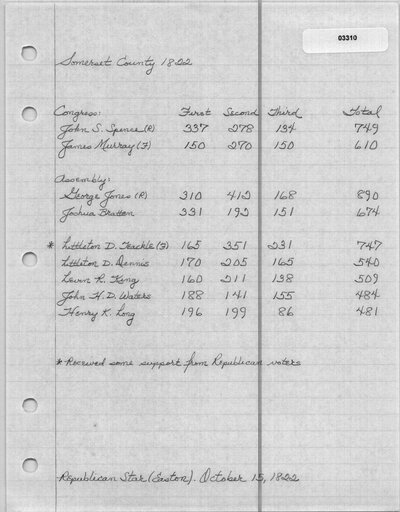 03310
Somerset County 1822
Congress: First Second Third Total
John S. Spence (R) 337 278 134 749
James Murray (F) 190 270 150 610
Assembly:
George Jones (R) 310 412 168 890
Joshua Bratten 331 192 151 674
* Littleton D. Teackle (F) 165 351 231 747
Littleton D. Dennis 170 205 165 540
Levin R. King 160 211 138 509
John H. D. Waters 188 141 155 484
Henry K. Long 196 199 86 481
* Received some support from Republican voters
Republican Star (Easton). October 15, 1822